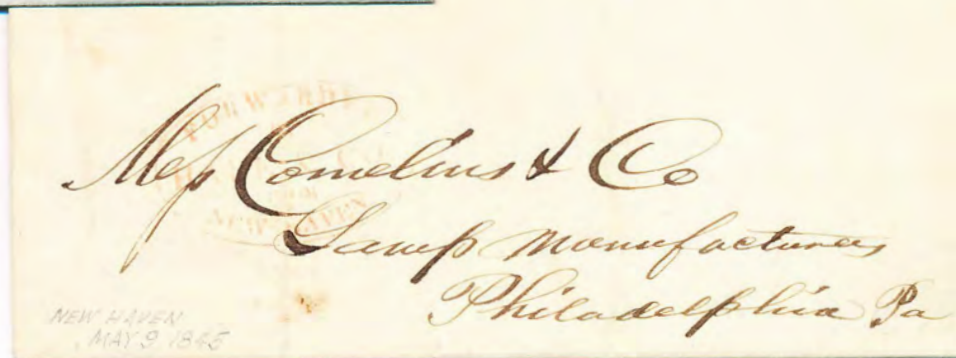 FORWARDED
NEW HAVEN
Mess Cornelius & Co
Lamp Manufacturers
Philadelphia Pa
NEW HAVEN
MAY 9 1845